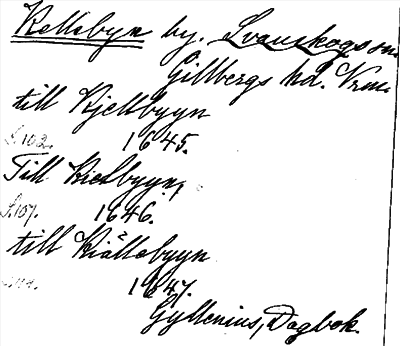 Kellebyn by. Svanskogs sn.
Gillbergs hd. Vrm.
till Kjellbyyn
S. 102. 1645.
Till Kielbyyn,
S. 107. 1646.
till Kiällebyyn
1647.
Gyllenius, Dagbok.